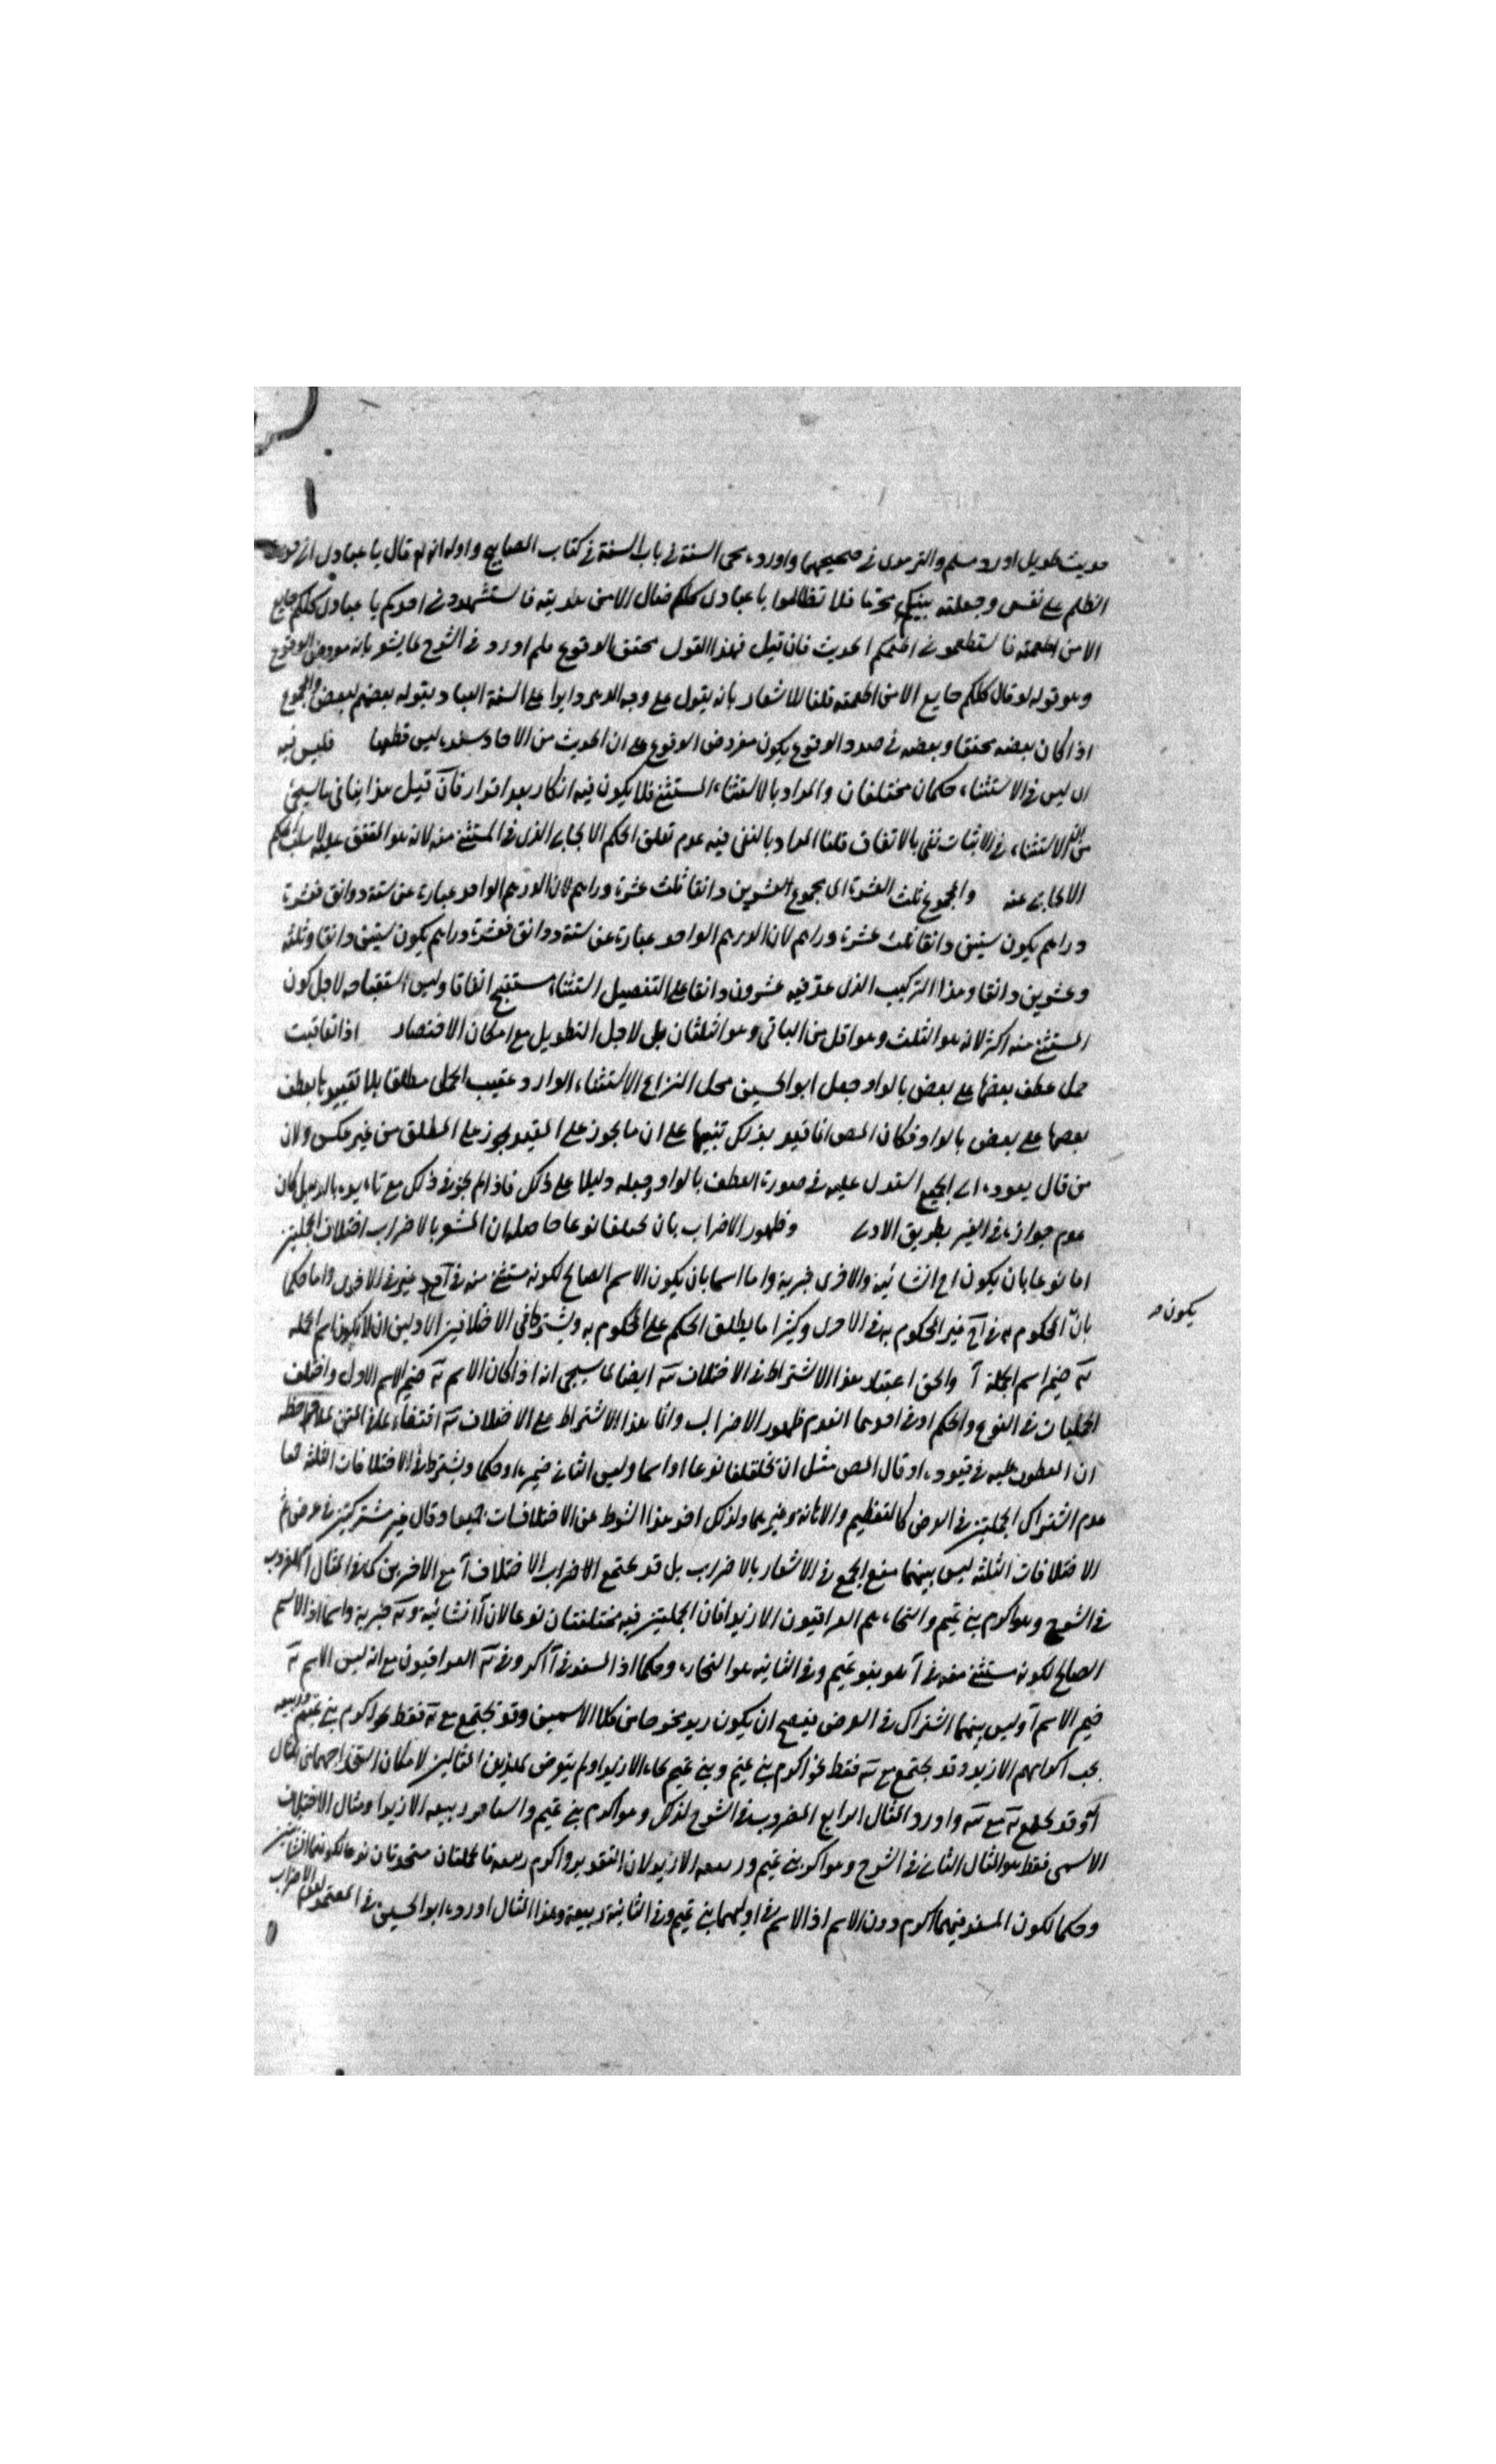 حديث طويل اورد مسلم والترمذى فى صحيحهما واورده محى السنة فى باب السنة فى كتاب المصابيح واوله انه قال يا عبادى انى حرمت
الظلم على نفسى وجعلته بينكم محرما فلا تظالموا يا عبادى كلكم ضال الا من هديته فاستهدونى اهدكم يا عبادى كلكم جايع
الا من اطعمته فاستطعمونى اطعمكم الحديث فان قيل فهذا القول محقق الوقوع فلم اورد فى الشرح ما يشعر بانه مفروض الوقوع
وهو قوله لو قال كلكم جايع الا من اطعمته قلنا للاشعار بانه يقول على وجه الدايرا على السنة العباد بقوله بعضهم لبعض والمجموع
اذا كان بعضه محققا وبعضه فى صدد الوقوع يكون مفروض الوقوع على ان الحديث من الاحاد سنده ليس قطعيا فليس فيه
اى ليس فى الاستثناء حكمان مختلفان والمراد بالاستثناء المستثنى فلا يكون فيه انكار بعد اقرار فان قيل هذا ينافى ما سيجئ
من ان الاستثناء فى الاثبات نفى بالاتفاق قلنا المراد بالنفى فيه عدم تعلق الحكم الايجابى الذى فى المستثنى منه لانه هو المتفق عليه لا سلب الحكم
الايجابى عنه والمجموع ثلث العشرة اى مجموع العشرين دانقا ثلث عشرة دراهم لان الدرهم الواحد عبارة عن ستة دوانق فعشرة
دراهم يكون ستين دانقا ثلث عشرة دراهم لان الدرهم الواحد عبارة عن ستة دوانق فعشرة دراهم يكون ستين دانقا وثلثه
وعشرين دانقا وهذا التركيب الذى عد فيه عشرون دانقا على التفصيل استثناء مستقبح اتفاقا وليس استقباحه لاجل كون
المستثنى منه اكثر لانه هو الثلث وهو اقل من الباقى وهو الثلثان بل لاجل التطويل مع امكان الاختصار اذا تعاقبت
جمل عطف بعضها على بعض بالواو جعل ابو الحسين محل النزاع الاستثناء الوارد عقيب الجمل مطلقا بلا تقييد بالعطف
بعضها على بعض بالواو فكان المص انما قيد بذلك تنبيها على ان ما يجوز على المقيد يجوز على المطلق من غير عكس ولان
من قال بعوده الى الجميع استدل عليه فى صورة العطف بالواو وجعله دليلا على ذلك فاذا لم يجز فى ذلك مع تاءيده بالدليل كان
عدم جوازه فى الغير بطريق الاولى وظهور الاضراب بان يختلفا نوعا حاصله ان المشعر بالاضراب اختلاف الجملتين
اما نوعا بان يكون احـ انشائية والاخرى خبرية واما اسما بان يكون الاسم الصالح لكونه مستثنى منه فى غيره فى الاخرى واما حكما
يكون
بان المحكوم به فى آ غير المحكوم به فى الاخرى وكثيرا ما يطلق الحكم على المحكوم به ويشترط فى الاختلافين الاولين ان لا يكون اسم الجملة
ضمير اسم الجملة آ والحق اعتبار هذا الاشتراط فى الاختلاف ايضا لما سيجئ انه اذا كان الاسم ضمير الاسم الاول واختلف
الجملتان فى النوع والحكم او فى احدهما انعدم ظهور الاضراب وانما هذا الاشتراط على الاختلاف اقتفاء على المتن بملاحظة
ان المعطوف عليه فى قيوده او قال المص مثل ان يختلفا نوعا او اسما وليس الثانى ضميره او حكما ويشترط فى الاختلافات الثلثة معا
عدم اشتراك الجملتين فى الغرض كالتعظيم والاهانة وغيرهما ولذلك اخر هذا الشرط عن الاختلافات جميعا وقال غير مشتركين فى غرض ثم
الاختلافات الثلثة ليس بينهما منع الجمع فى الاشعار بالاضراب بل قد يجتمع الاختلاف آ مع الاخرين كما فى المثال المضروب
فى الشرح وهو اكرم بنى تميم والنحاة هم العراقيون الا زيدا فان الجملتين فيه مختلفتان نوعا لان آ انشائية و خبرية واسما اذ الاسم
الصالح لكونه مستثنى منه فى آ هو بنو تميم وفى الثانية هو النحاة وحكما اذ المسند فى آ اكرم وفى العراقيون مع انه ليس الاسم
ضمير الاسم آ وليس بينهما اشتراك فى الغرض فيصح ان يكون زيد مخرجا من كلا الاسمين وقد يجتمع مع فقط نحو اكرم بنى تميم وربيعة
يجب اكرامهم الا زيدا وقد يجتمع مع فقط نحو اكرم بنى تميم وبنى تميم نحاة الا زيدا ولم يتعرض لهذين المثالين لامكان استخراجهما من المثال
آ وقد يجتمع مع واورد المثال الرابع المضروب فى الشرح لذلك وهو اكرم بنى تميم واستاجر ربيعة الا زيدا ومثال الاختلاف
الاسمى فقط هو المثال الثانى فى الشرح وهو اكرم بنى تميم وربيعة الا زيدا لان التقدير واكرم ربيعة فالجملتان متحدتان نوعا لكونهما انشائيتين
وحكما لكون المسند فيهما اكرم دون الاسم اذ الاسم فى اوليهما بنى تميم وفى الثانية ربيعة وهذا المثال اورده ابو الحسين فى المعتمد